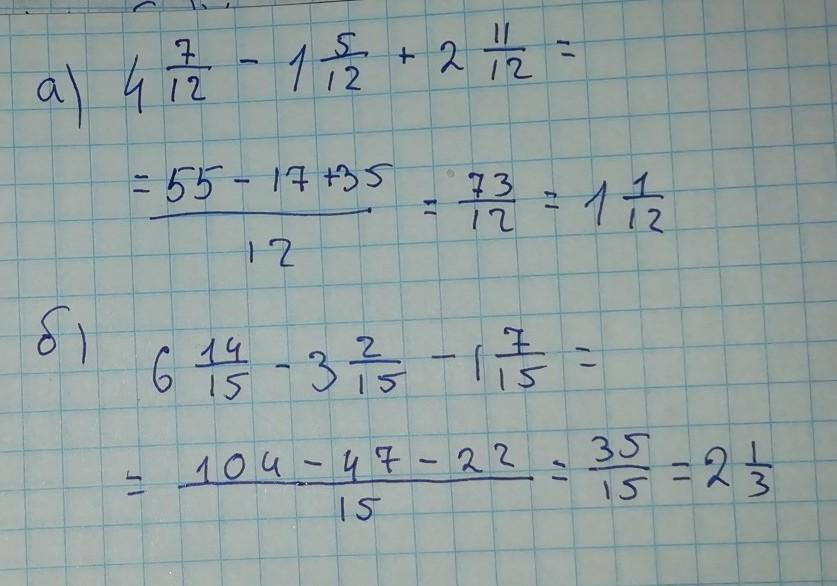 а) 4 7/12 - 1 5/12 + 2 11/12 =
= 55 - 17 + 35 / 12 = 73/12 = 1 1/12
б) 6 14/15 - 3 2/15 - 1 7/15 =
= 104 - 47 - 22 / 15 = 35/15 = 2 1/3